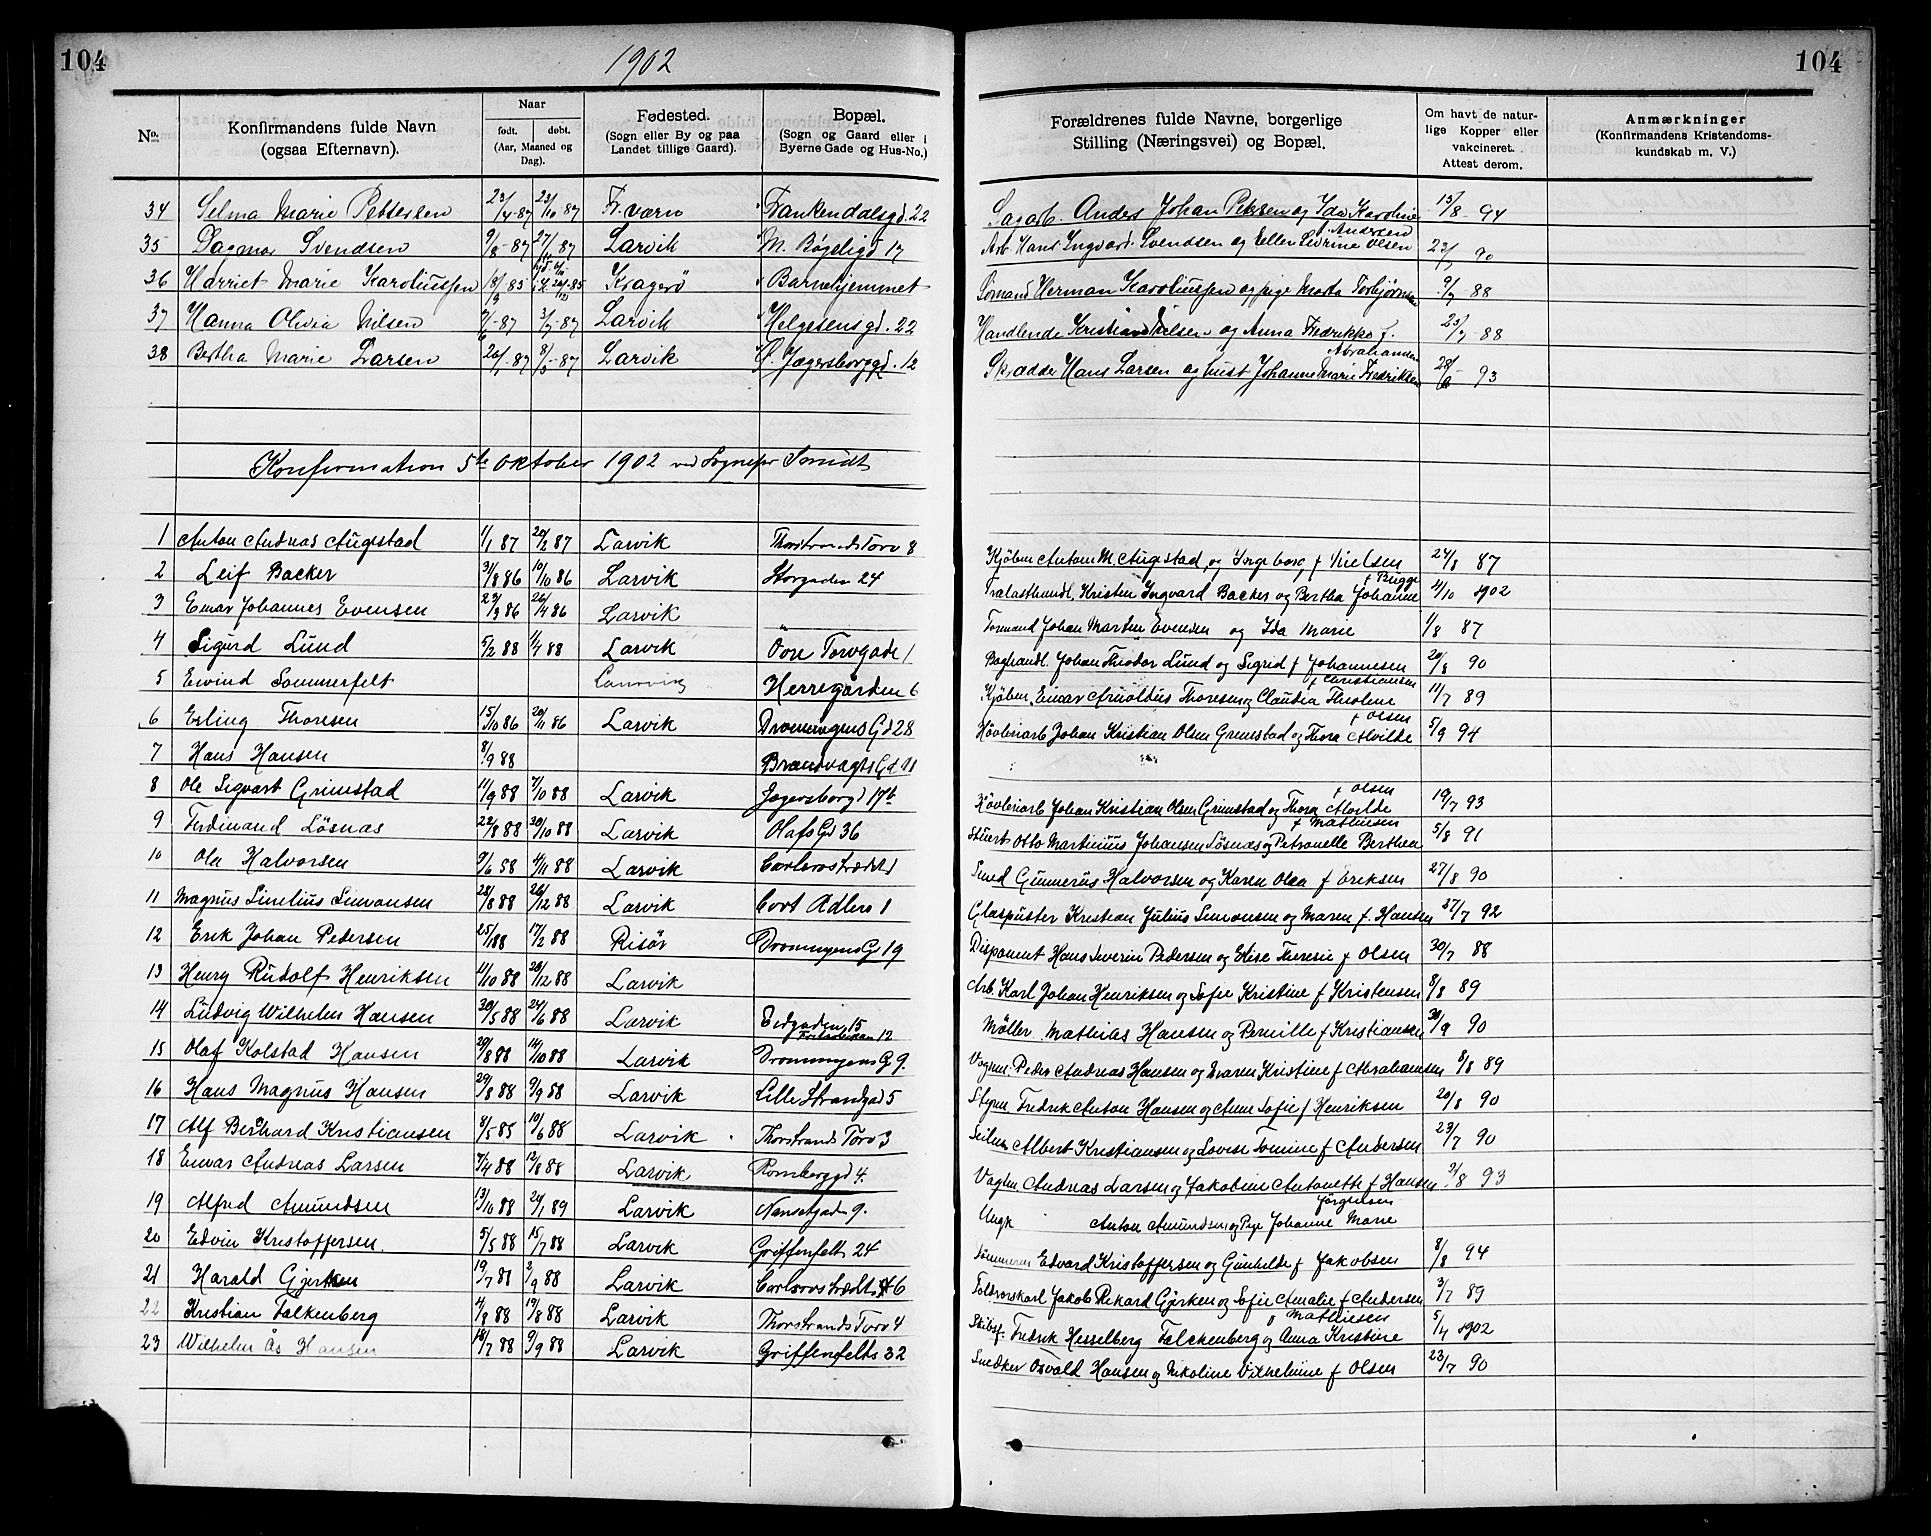 104
1902
104
No.
Konfirmandens fulde Navn
(ogsaa Efternavn).
Naar
født. døbt.
(Aar, Maaned og
Dag).
Fødested.
(Sogn eller By og paa
Landet tillige Gaard).
Bopæl.
(Sogn og Gaard eller i
Byerne Gade og Hus-No.)
Forældrenes fulde Navne, borgerlige
Stilling (Næringsvei) og Bopæl.
Om havt de natur-
lige Kopper eller
vakcineret.
Attest derom.
Anmærkninger
(Konfirmandens Kristendoms-
kundskab m. V.)
34 Selma Marie Pettersen 23/4-87 23/10 87 Fr.værn Frankendalsgd. 22 Sagarb. Anders Johan Petersen og Ida Karoline Andersen 15/8-94
35 Dagmar Svendsen 9/8-87 27/11 87 Larvik M. Bøgeligd 17 Arb. Hans Ingvard Svendsen og Ellen Sevrine Olsen 90
36 Harriet Marie Karoliussen 18/9 85 85 Kragerö Barnehjemmet Sömand Herman Karoliussen og pige Marta Torbjørnsen 9/7-88
37 Hanna Olivia Nilsen 87 3/7-87 Larvik Helgesensgd. 22 Handlende Kristian Nilsen og Anna Fredrikke f. Abrahamsen 23/7-88
38 Bertha Marie Larsen 26/1-87 8/5-87 Larvik Ø. Jægersborggd. 12 Skrædder Hans Larsen og hust Johanne Marie Fredriksen 93
Konfirmation 5te Oktober 1902 ved Sognepr Smidt
1 Anton Andreas Augestad 1/1 87 20/2 87 Larvik Thorstrands Torv 8 Kjöbm Antom M. Augestad og Ingeborg f Nielsen 24/8 87
2 Leif Backer 31/8 86 10/10 86 Larvik Storgaden 24 Trælasthandl. Kristen Ingvard Backer og Bertha Johanne f Bugge 4/10 1902
3 Einar Johannes Evensen 23/3 86 26/4 86 Larvik Tormand Johan Martin Evensen og Ida Marie 1/8 87
4 Sigurd Lund 5/2 88 1/4 88 Larvik Övre Torvgade 1 Boghandl. Johan Theodor Lund og Sigrid f Johannesen 20/8 90
5 Eivind Sommerfelt Herregården 6 Kjöbm Einar Arnoldus Thoresen og Claudia Theoline f Christiansen 11/7 89
6 Erling Thoresen 15/10 86 20/11 86 Larvik Dronningens Gd 28 Hövleriarb Johan Kristian Olsen Grimstad og Thora Alvilde f Olsen 5/9 94
7 Hans Hansen 8/9 88 Brandvagts Gd 11
8 Ole Sigvart Grimstad 11/9 88 7/10 88 Larvik Jegersborgd 17b Hövleriarb Johan Kristian Olsen Grimstad og Thora Alvilde f Olsen 19/7 93
9 Ferdinand Lösnæs 22/8 88 30/10 88 Larvik Olafs Gd 36 Stuert Otto Martinius Johansen Lösnæs og Petronelle Berthea f Mathiesen 5/8 91
10 Ole Halvorsen 9/6 58 4/11 88 Larvik Carlsrostrædet 1 Smed Gunnerus Halvorsen og Karen Olea f Eriksen 27/8 90
11 Magnus Sinelius Simonsen 28/8 88 26/12 88 Larvik Cort Adlers 1 Glaspuster Kristian Julius Simonsen og Maren f. Hansen 27/7 92
12 Erik Johan Pedersen 25/1 88 17/2 88 Risör Dronningens Gd 19 Disponent Hans Severin Pedersen og Elise Theresie f Olsen 30/7 88
13 Henry Rudolf Henriksen 11/10 88 28/12 88 Larvik Arb. Karl Johan Henriksen og Sofie Kristine f Kristensen 8/8 89
14 Ludvig Wilhelm Hansen 30/5 88 24/6 88 Larvik 15 12 Møller Mathias Hansen og Pernille f Kristiansen 30/9 90
15 Olaf Kolstad Hansen 29/8 88 14/10 88 Larvik Dronningens G 9. Vognm. Peder Andreas Hansen og Maren Kristine f Abrahamsen 8/8 89
16 Hans Magnus Hansen 29/8 88 9/9 88 Larvik Lille Strandgad 5 Styrm. Fredrik Anton Hansen og Anne Sofie f Henriksen 20/8 90
17 Alf Bernhard Kristiansen 8/5 85 10/6 88 Larvik Thorstrands Torv 3 Seilm. Albert Kristiansen og Lovise Tomine f Andersen 23/7 90
18 Einar Andreas Larsen 7/4 88 12/8 88 Larvik Romberggd 4. Andreas Larsen og Jakobine Antonette f Hansen 2/8 93
19 Alfred Amundsen 13/10 88 24/1 89 Larvik Nansetgad 9. Ungk Anton Amundsen og Pige Johanne Marie Jörgensen
20 Edvin Kristoffersen. 5/5 88 15/7 88 Larvik Griffenfelt 24 Tömmerm Edvard Kristoffersen og Gunhilde f Jakobsen 8/8 94
21 Harald Gjerken 19/7 88 2/9 88 Larvik Carlsrostrædet 6 Toldrorskarl Jakob Rikard Gjörken og Sofie Amalie f Andersen 3/7 89
22 Kristian Falkenberg 4/8 88 19/8 88 Larvik Thorstrands Torv 4 Skibsf. Fredrik Hesselberg Falckenberg og Anna Kristine f Mathiesen 5/4 1902
23 Wilhelm Ås Hansen 18/7 88 9/9 88 Larvik Griffenfelts 32 Snedker Osvald Hansen og Nikoline Vilhelmine f Olsen 23/7 90